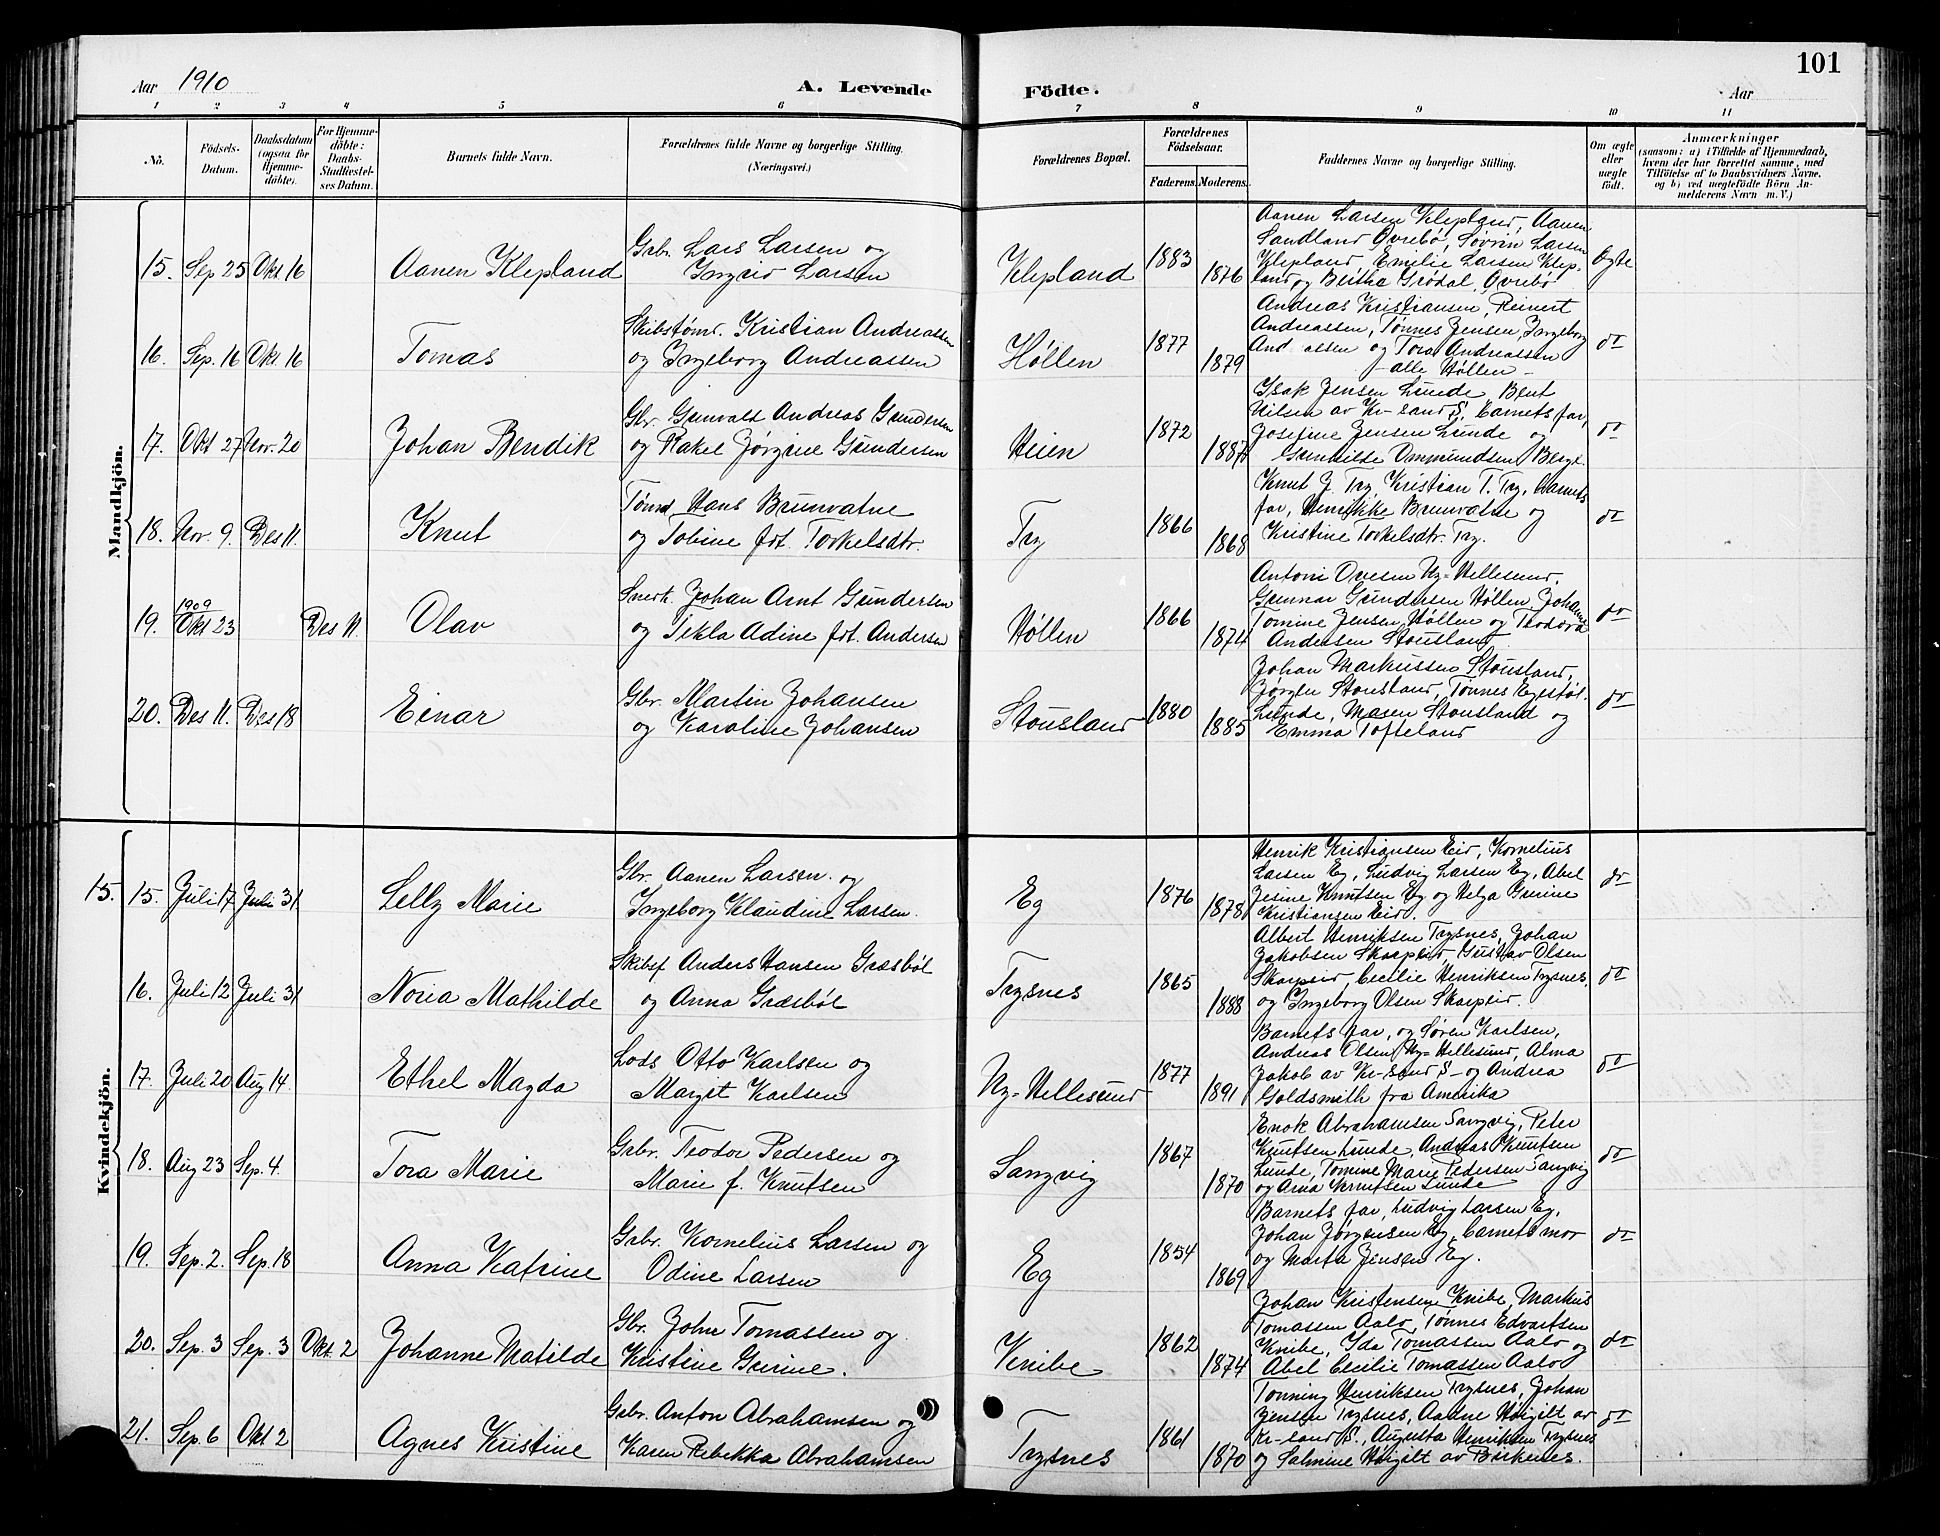 Aar 1910
A. Levende Födte.
Aar
101
1 2 3 4 5 6 7 8 9 10 11
No.
Födsels-Datum.
Daabsdatum (ogsaa for Hjemme-döbte).
For Hjemme-döbte: Daabs-Stadfæstel-ses Datum.
Barnets fulde Navn.
Forældrenes fulde Navne og borgerlige Stilling. (Næringsvei.)
Forældrenes Bopæl.
Forældrenes Födselsaar.
Faderens. Moderens.
Faddernes Navne og borgerlige Stilling.
Om ægte eller uægte födt.
Anmærkninger
(saasom: a) i Tilfælde af Hjemmedaab,
hvem der har forrettet samme, med
Tilföielse af to Daabsvidners Navne.
og b) ved uægtefödte Börn An-
melderens Navn m.V.)
Mandkjön.
15. Sep 25 Okt 16 Aanen Klepland
Gbr. Lars Larsen og
Ingvor Larsen
Klepland 1883 1876
Aanen Larsen Klepland, Aanen
Sandland Øvrebø, Søvrin Larsen
Klepland Emilie Larsen Klep-
land og Bertha Grødal, Øvrebø
Egte
16. Sep. 16 Okt. 16 Tomas
Skibstømr. Kristian Andreassen
og Ingeborg Andreassen
Høllen 1877 1879
Andreas Kristiansen, Reinert
Andreassen, Tønnes Jensen, Ingeborg
Andreassen og Tora Andreassen
- alle Høllen -
do
17. Okt 27 Nov. 20 Johan Bendik
Gbr. Gunvald Andreas Gundersen
og Rakel Jørgine Gundersen
Heien 1872 1887
Isak Jensen Lunde, Bent
Nilsen av Kr-sand S. Barnets far,
Josefine Jensen Lunde og
Gunhilde Ommundsen Berge.
do
18. Nov. 9. Des 11. Knut
Tømd. Hans Brunvatne
og Tobine fdt. Torkelsdtr.
Try 1866 1868
Knut J. Try, Kristian T. Try, barnets
far, Henrikke Brunvatne og
Kristine Torkelsdtr. Try.
do
19. 1909 Okt 23 Des 11. Olav
Snedk. Johan Arnt Gundersen
og Tekla Adine fdt. Andersen
Høllen 1866 1874
Antoni Ovesen Ny-Hellesund,
Gunnar Gundersen Høllen, Johanne
Tomine Jensen, Høllen og Teodora
Andersen Stousland
do
20. Des 11. Des 18 Einar
Gbr. Martin Johansen
og Karoline Johansen
Stousland 1880 1885
Johan Markussen Stousland,
Jørgen Stousland, Tønnes Egestøl
Lunde, Maren Stousland og
Emma Tofteland
do
Kvindekjön.
15. 15. Juli 17 Juli 31. Lelly Marie
Gbr. Aanen Larsen og
Ingeborg Klaudine Larsen.
Eg 1876 1878
Henrik Kristiansen Eid, Kornelius
Larsen Eg, Ludvig Larsen Eg, Abel
Jesine Knutsen Eg og Helga Gurine
Kristiansen Eid.
do
16. Juli 12 Juli 31 Nora Mathilde
Skibsf Anders Hansen Græsbøl
og Anna Græsbøl
Trysnes 1865 1888
Albert Henriksen Trysnes, Johan
Jakobsen Skarpeid, Gustav Olsen
Skarpeid, Cecilie Henriksen Trysnes,
og Ingeborg Olsen Skarpeid.
do
17. Juli 20 Aug 14. Ethel Magda
Lods Otto Karlsen og
Margit Karlsen
Ny-Hellesund 1877 1891
Barnets far, og Søren Karlsen,
Andreas Olsen Ny-Hellesund, Alma
Jakob av Kr-sand S- og Andrea
Goldsmith fra Amerika
do
18. Aug 23 Sep. 4. Tora Marie
Gbr. Teodor Pedersen og
Marie f. Knutsen
Langvig 1867 1870
Enok Abrahamsen Langvig, Peter
Knutsen Lunde, Andreas Knutsen
Lunde, Tomine Marie Pedersen Langvig
og Anna Knutsen Lunde
do
19. Sep. 2. Sep. 18 Anna Katrine
Gbr. Kornelius Larsen og
Odine Larsen
Eg 1854 1869
Barnets far, Ludvig Larsen Eg,
Johan Jørgensen Eg, barnets mor
og Marta Jensen Eg.
do
20. Sep. 3 Sep. 3 Okt. 2 Johanne Matilde
Gbr. John Tomassen og
Kristine Gurine.
Knibe 1862 1874
Johan Kristensen Knibe, Markus
Tomassen Aalo, Tønnes Edvartsen
Knibe, Ida Tomassen Aalo og
Abel Cecilie Tomassen Aalo
do
21. Sep. 6 Okt 2 Agnes Kristine
Gbr. Anton Abrahamsen og
Karen Rebekka Abrahamsen
Trysnes 1861 1870
Tønning Henriksen Trysnes, Johan
Jensen Trysnes, Aadne Høigilt av
Kr-sand S., Augusta Henriksen Trysnes
og Salmine Høigilt av Birkenes.
do